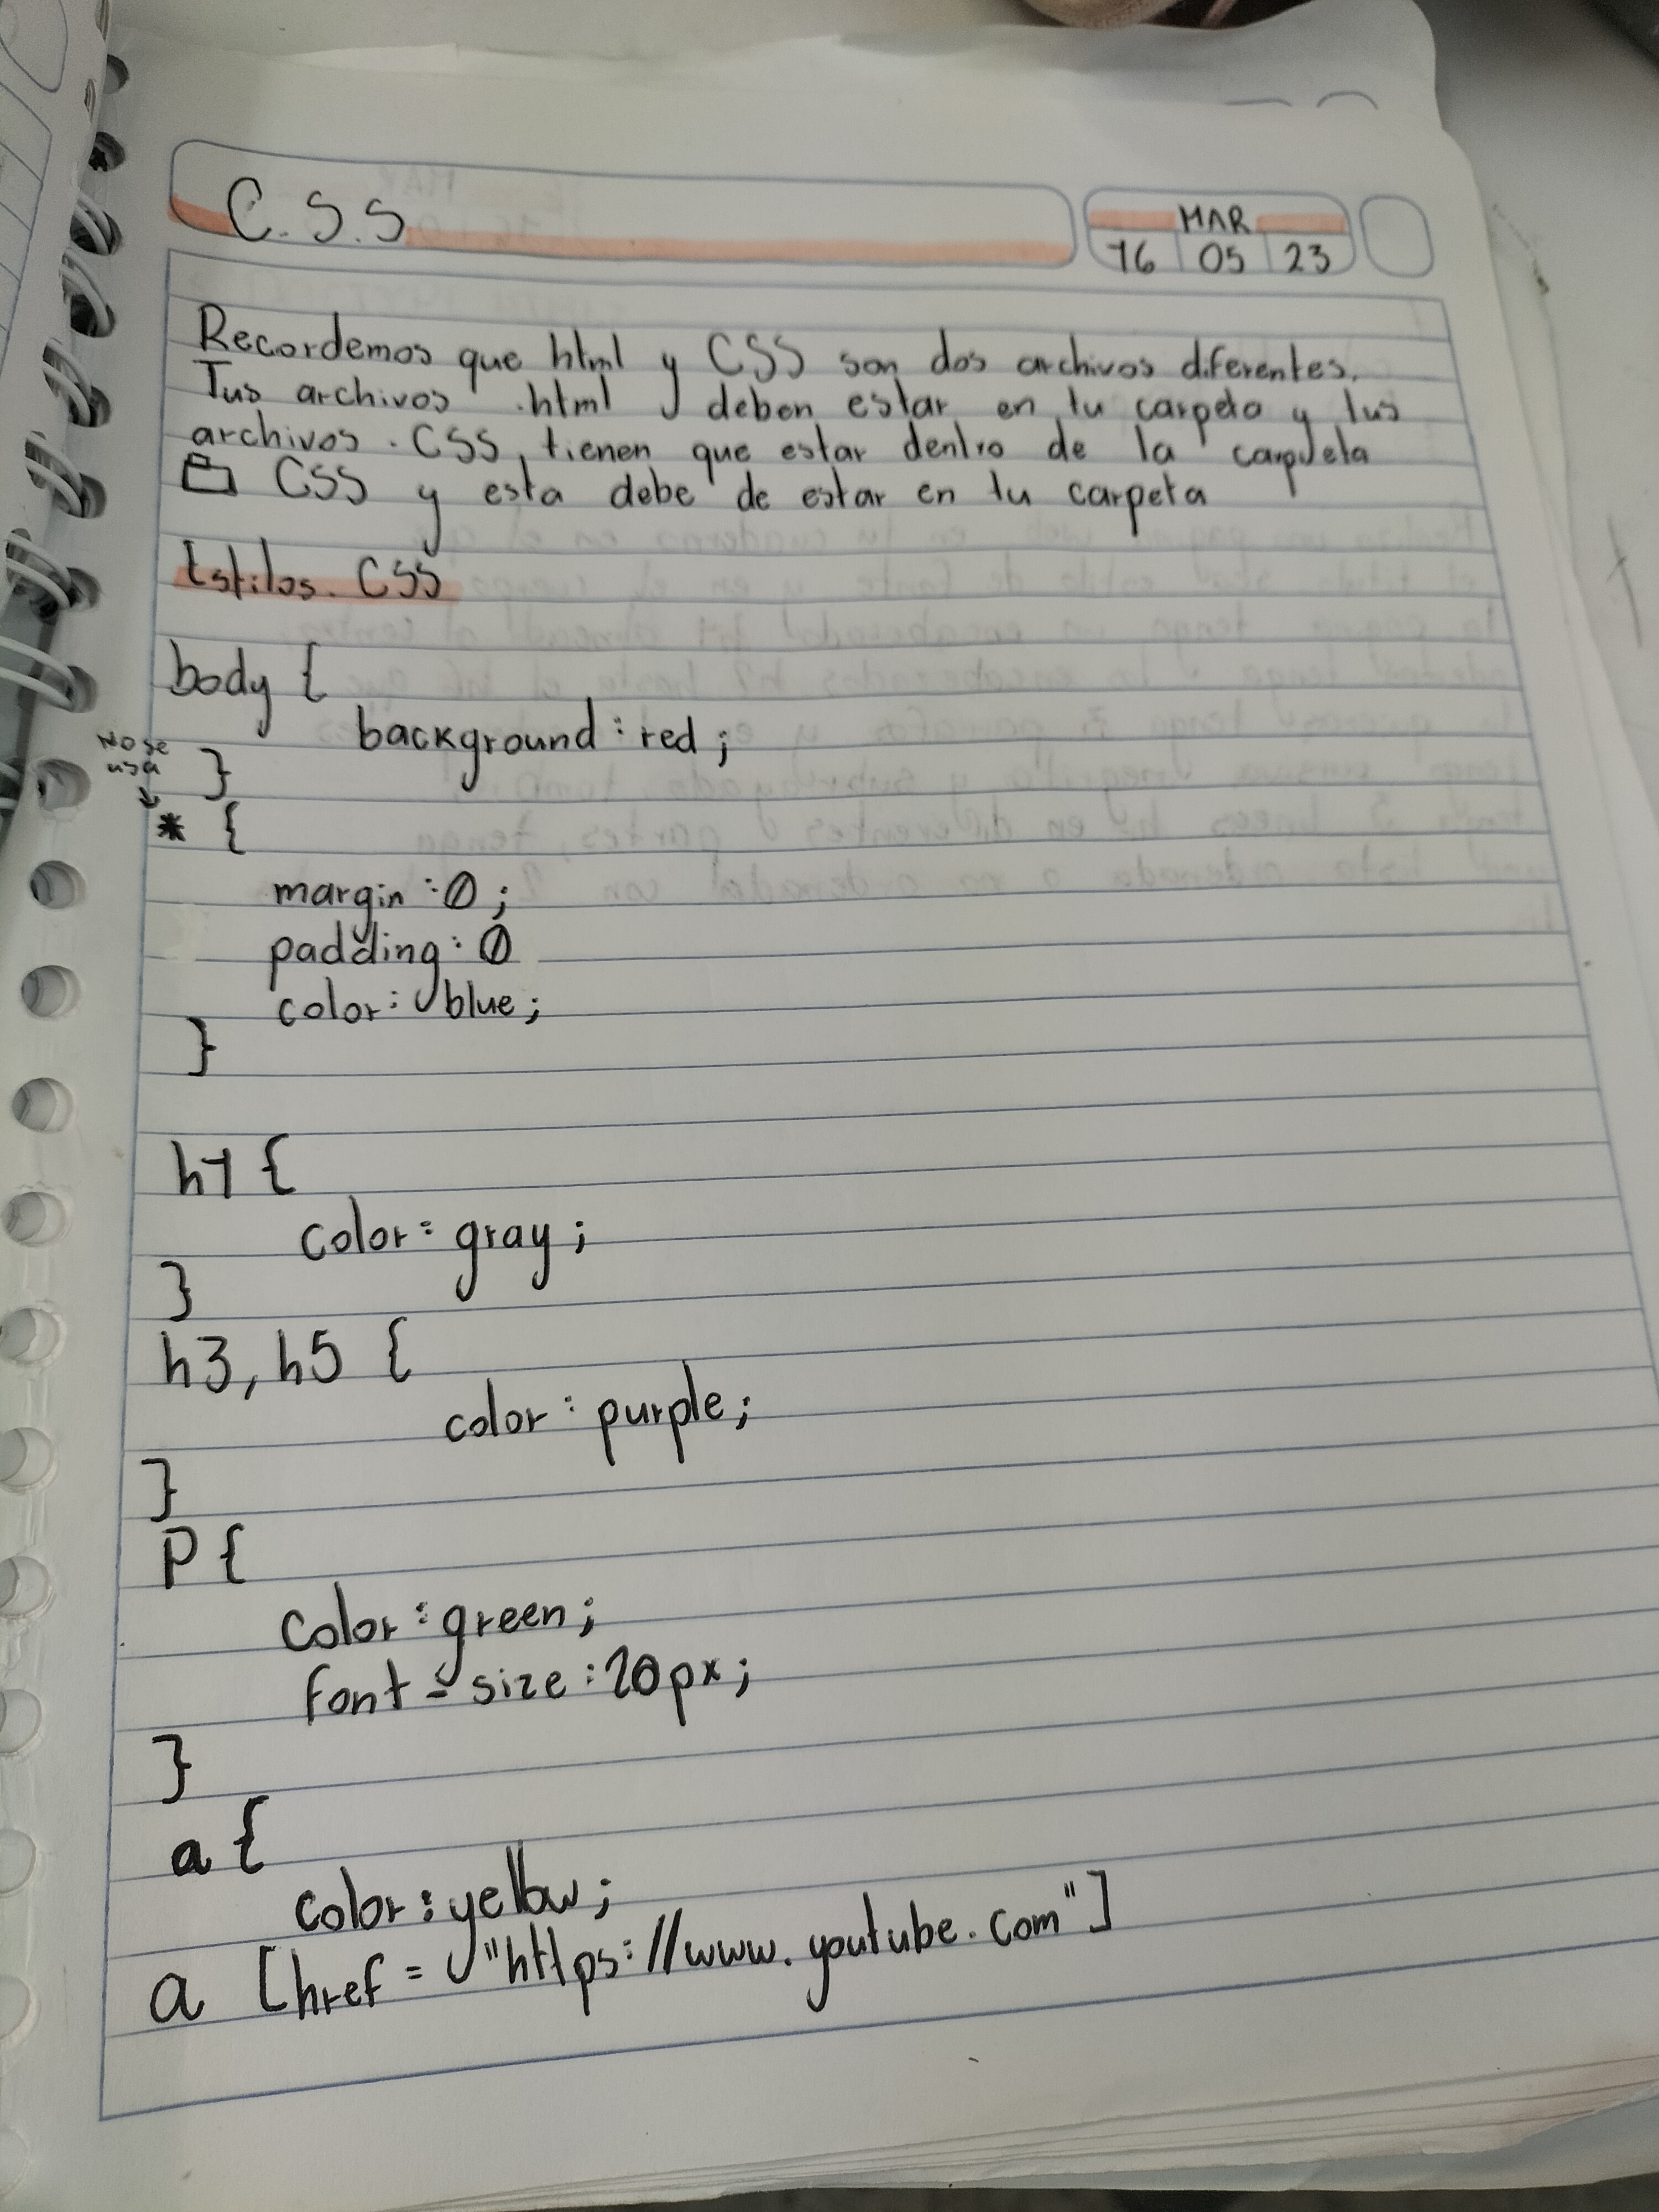 C.S.S
MAR
16 05 23
Recordemos que html y CSS son dos archivos diferentes.
Tus archivos .html deben estar en tu carpeta y tus
archivos .CSS, tienen que estar dentro de la carpeta
CSS y esta debe de estar en tu carpeta
Estilos. CSS
body {
background: red;
No se
usa
}
* {
margin: 0;
padding: 0
color: blue;
}
h1 {
color: gray;
}
h3, h5 {
color: purple;
}
P {
color: green;
font-size: 20px;
}
a {
color: yellow;
a [href = "https://www.youtube.com"]